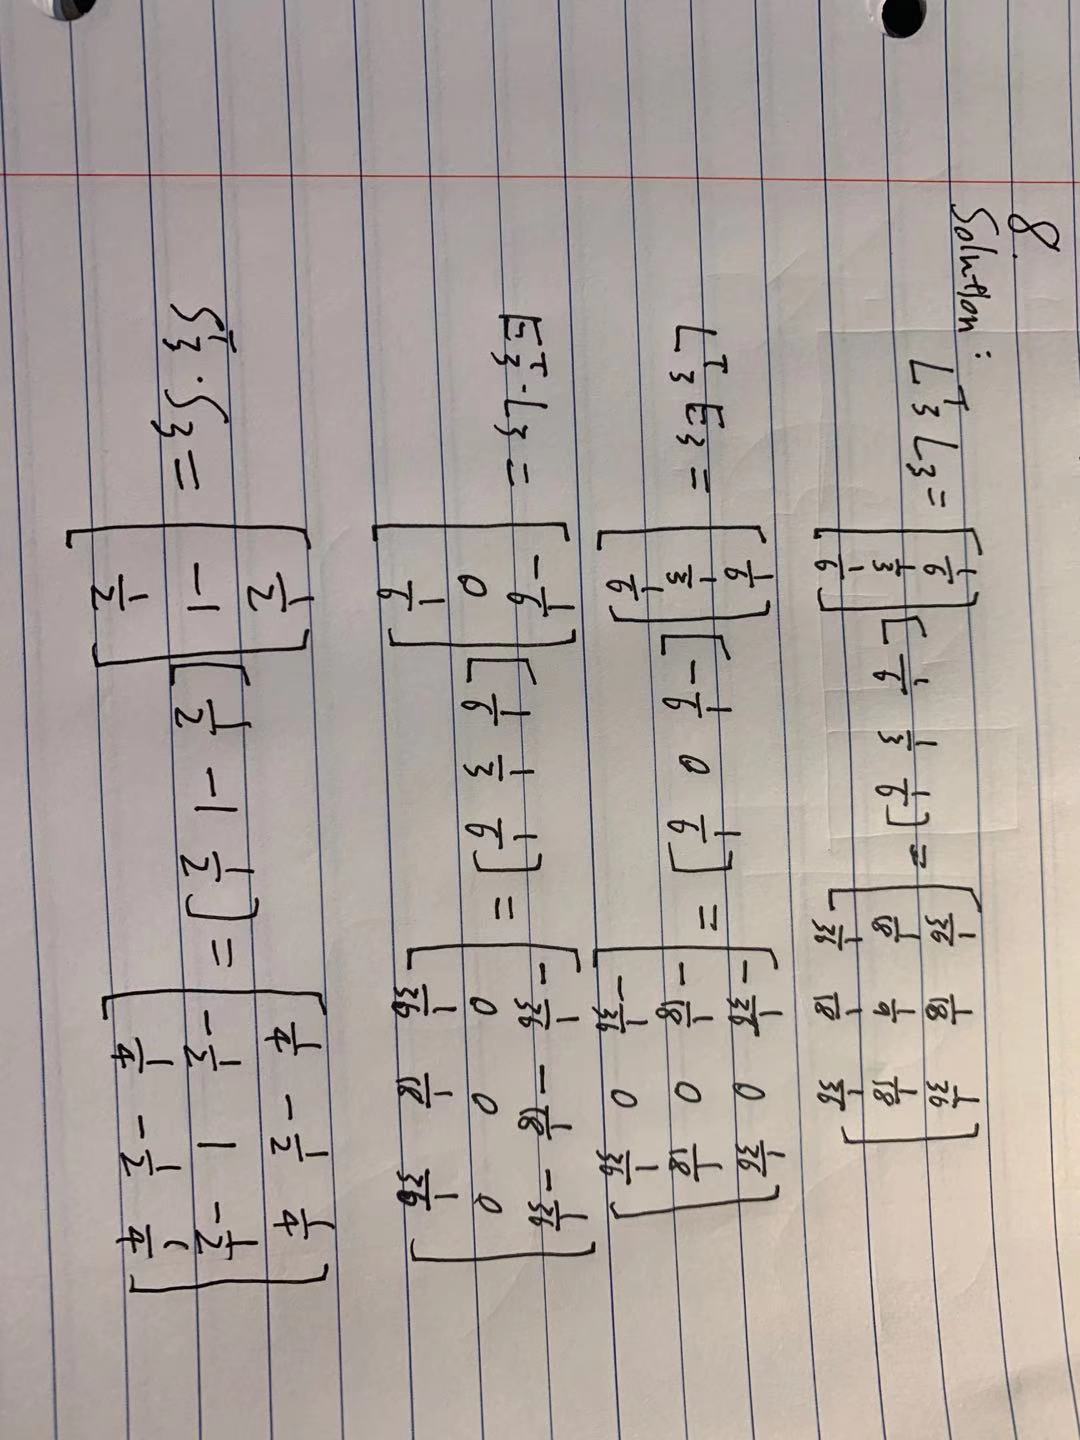 8.
Solution:
L₃ᵀL₃ = [1/6; 1/3; 1/6] [1/6 1/3 1/6] = [1/36 1/18 1/36; 1/18 1/9 1/18; 1/36 1/18 1/36]
L₃ᵀE₃ = [1/6; 1/3; 1/6] [-1/6 0 1/6] = [-1/36 0 1/36; -1/18 0 1/18; -1/36 0 1/36]
E₃ᵀ·L₃ = [-1/6; 0; 1/6] [1/6 1/3 1/6] = [-1/36 -1/18 -1/36; 0 0 0; 1/36 1/18 1/36]
S₃ᵀ·S₃ = [1/2; -1; 1/2] [1/2 -1 1/2] = [1/4 -1/2 1/4; -1/2 1 -1/2; 1/4 -1/2 1/4]